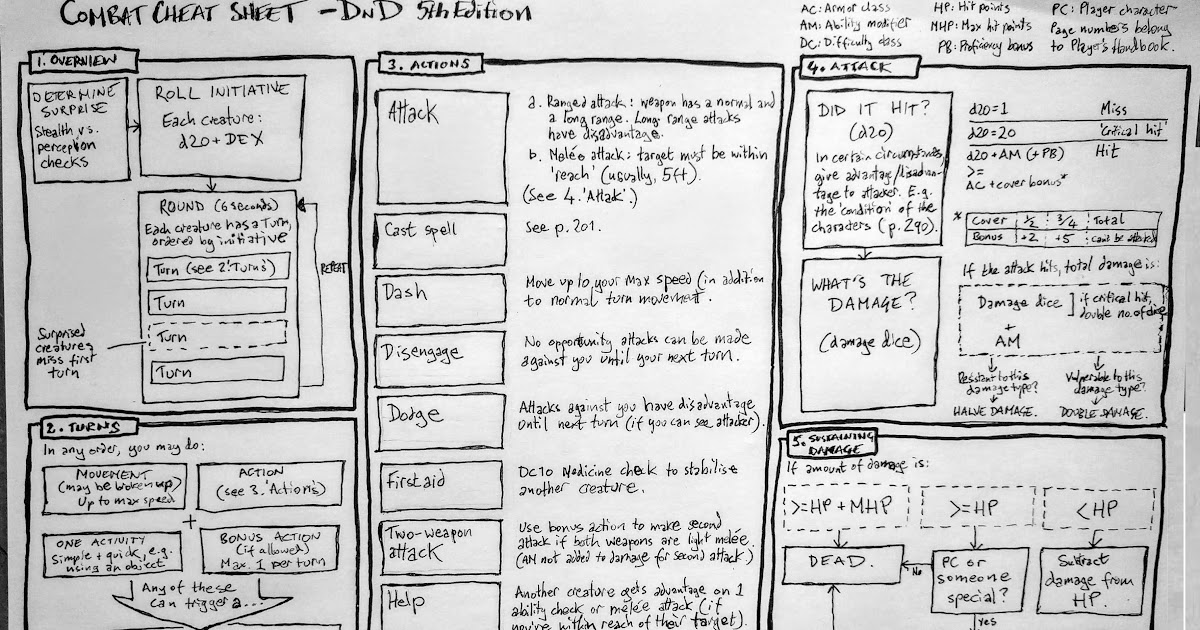 COMBAT CHEAT SHEET - DnD 5th Edition
AC: Armor class
AM: Ability modifier
DC: Difficulty class
HP: Hit points
MHP: Max hit points
PB: Proficiency bonus
PC: Player character
Page numbers belong
to Player's Handbook.
1. OVERVIEW
DETERMINE
SURPRISE
Stealth vs.
perception
checks
ROLL INITIATIVE
Each creature:
d20 + DEX
ROUND (6 seconds)
Each creature has a Turn,
ordered by initiative
Turn (see 2.'Turns')
Turn
Turn
Turn
REPEAT
Surprised
creatures
miss first
turn
2. TURNS
In any order, you may do:
MOVEMENT
(may be broken up)
Up to max speed
ACTION
(see 3.'Actions')
+
ONE ACTIVITY
Simple + quick, e.g.
using an object
BONUS ACTION
(if allowed)
Max. 1 per turn
Any of these
can trigger a...
3. ACTIONS
Attack
a. Ranged attack: weapon has a normal and
a long range. Long range attacks
have disadvantage.
b. Melée attack: target must be within
'reach' (usually, 5ft).
(See 4.'Attak'.)
Cast spell
See p.201.
Dash
Move up to your max speed (in addition
to normal turn movement.
Disengage
No opportunity attacks can be made
against you until your next turn.
Dodge
Attacks against you have disadvantage
until next turn (if you can see attacker).
First aid
DC10 Medicine check to stabilise
another creature.
Two-weapon
attack
Use bonus action to make second
attack if both weapons are light melée.
(AM not added to damage for second attack.)
Help
Another creature gets advantage on 1
ability check or melée attack (if
you're within reach of their target).
4. ATTACK
DID IT HIT?
(d20)
In certain circumstances,
give advantage/disadvan-
tage to attacker. E.g.
the 'condition' of the
characters (p.290).
d20=1 Miss
d20=20 'Critical hit'
d20+AM (+PB) Hit
>=
AC + cover bonus*
* Cover 1/2 3/4 Total
Bonus +2 +5 can't be attacked
WHAT'S THE
DAMAGE?
(damage dice)
If the attack hits, total damage is:
Damage dice ] if critical hit,
double no. of dice
+
AM
Resistant to this
damage type?
HALVE DAMAGE.
Vulnerable to this
damage type?
DOUBLE DAMAGE.
5. SUSTAINING
DAMAGE
If amount of damage is:
>=HP + MHP
>=HP
<HP
DEAD.
No
PC or
someone
special?
yes
Subtract
damage from
HP.